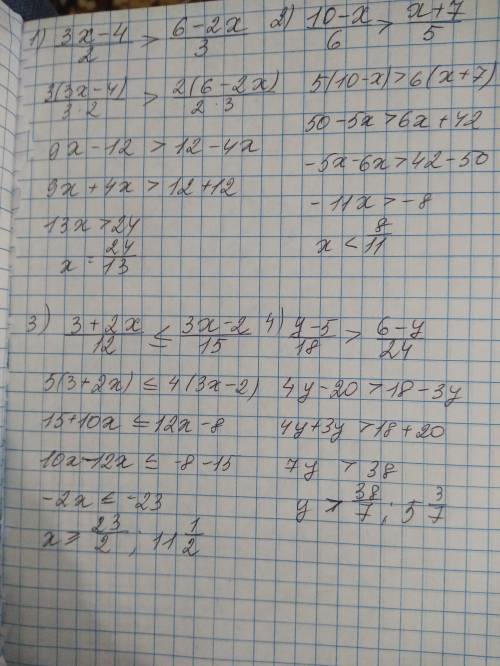 1) (3x-4)/2 > (6-2x)/3
3(3x-4)/(3·2) > 2(6-2x)/(2·3)
9x-12 > 12-4x
9x+4x > 12+12
13x > 24
x = 24/13
2) (10-x)/6 > (x+7)/5
5(10-x) > 6(x+7)
50-5x > 6x+42
-5x-6x > 42-50
-11x > -8
x < 8/11
3) (3+2x)/12 ≤ (3x-2)/15
5(3+2x) ≤ 4(3x-2)
15+10x ≤ 12x-8
10x-12x ≤ -8-15
-2x ≤ -23
x ≥ 23/2; 11 1/2
4) (y-5)/18 > (6-y)/24
4y-20 > 18-3y
4y+3y > 18+20
7y > 38
y > 38/7; 5 3/7